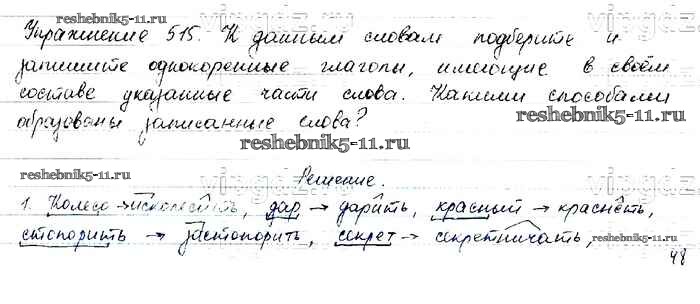 reshebnik5-11.ru
Упражнение 515. К данным словам подберите и
запишите однокоренные глаголы, имеющие в своём
составе указанные части слова. Какими способами
reshebnik5-11.ru
образованы записанные слова?
reshebnik5-11.ru
reshebnik5-11.ru
Решение.
1. Колесо → исколесить, дар → дарить, красный → краснеть,
стопорить → застопорить, секрет → секретничать,
reshebnik5-11.ru
48